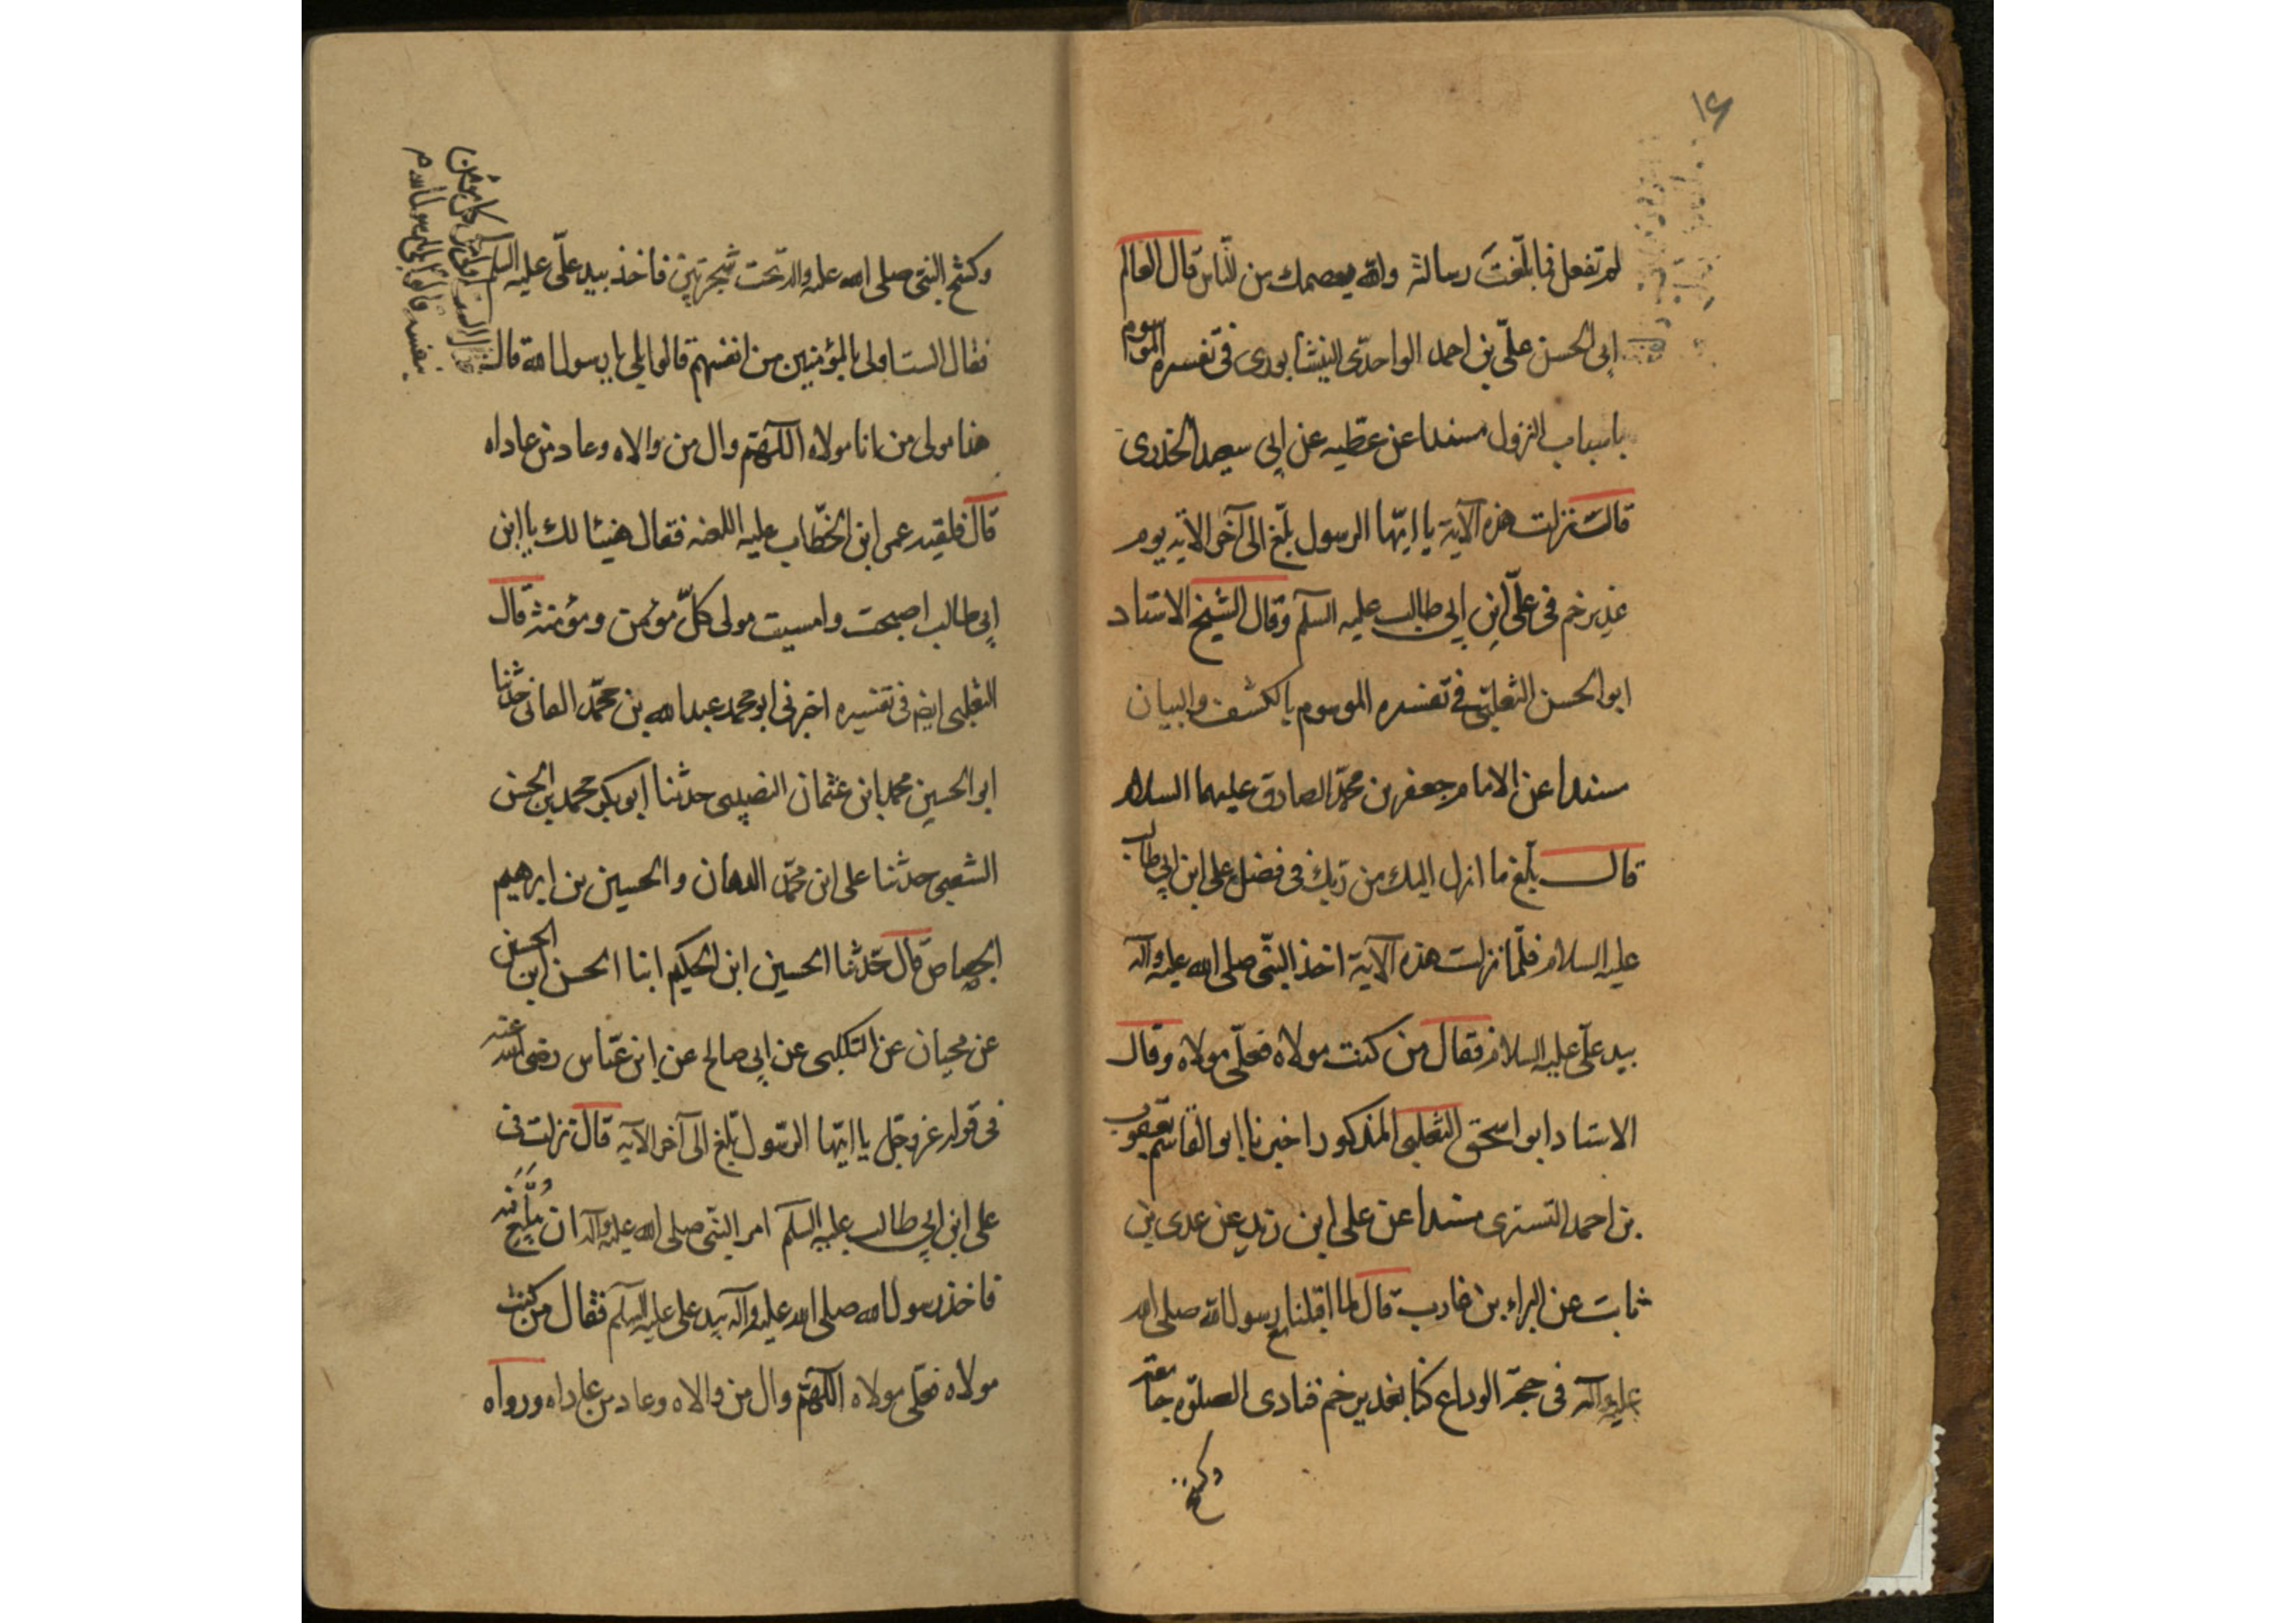 ١٤
لم تفعل فما بلّغت رسالته والله يعصمك من النّاس قال العالم
ابى الحسن علىّ بن احمد الواحدى النيشابورى فى تفسيره الموسوم
باسباب النزول مسندا عن عطيه عن ابى سعيد الخدرى
قالت نزلت هذه الآية يا ايّها الرسول بلّغ الى آخر الآية يوم
غدير خم فى علىّ ابن ابى طالب عليه السلم وقال الشيخ الاستاد
ابو الحسن الثعلبى فى تفسيره الموسوم بالكشف والبيان
مسندا عن الامام جعفر بن محمّد الصادق عليهما السلام
قال بلّغ ما انزل اليك من ربك فى فضل على ابن ابى طالب
عليه السلام فلمّا نزلت هذه الآية اخذ النبّى صلى الله عليه وآله
بيد علىّ عليه السلام فقال من كنت مولاه فعلّى مولاه وقال
الاستاد ابو اسحق الثعلبى المذكور اخبرنا ابو القاسم يعقوب
بن احمد التسترى مسندا عن على ابن زيد عن عدى بن
ثابت عن البراء بن عازب قال لما اقبلنا مع رسول الله صلى الله
عليه وآله فى حجة الوداع كنا بغدير خم فنادى الصلوة جامعة
وكشح
وكشح النبى صلى الله عليه وآله تحت شجرتين فاخذ بيد علىّ عليه السلم
فقال الست اولى بالمؤمنين من انفسهم قالوا بلى يا رسول الله قال
هذا مولى من انا مولاه اللهّم وال من والاه وعاد من عاداه
قال فلقيه عمر ابن الخطّاب عليه اللعنه فقال هنيئا لك يا ابن
ابى طالب اصبحت وامسيت مولى كلّ مؤمن ومؤمنة قال
الثعلبى ايضا فى تفسيره اخبرنى ابو محمد عبد الله بن محمّد القانى حدثنا
ابو الحسين محمد ابن عثمان النصيبى حدثنا ابو بكر محمد بن الحسن
الشعبى حدثنا على ابن محمّد الدهان والحسين بن ابرهيم
الجصاص قال حدّثنا الحسين ابن الحكيم ابنا الحسن ابن الحسين
عن حيان عن الكلبى عن ابى صالح عن ابن عبّاس رضى الله عنه
فى قوله عزوجل يا ايّها الرسول بلّغ الى آخر الآيه قال نزلت فى
على ابن ابى طالب عليه السلم امر النبّى صلى الله عليه وآله ان يبلّغ فيه
فاخذ رسول الله صلى الله عليه وآله بيد على عليه السلم فقال من كنت
مولاه فعلّى مولاه اللهّم وال من والاه وعاد من عاداه ورواه
بكل مؤمن
من نفسه قالوا بلى يا رسول الله م